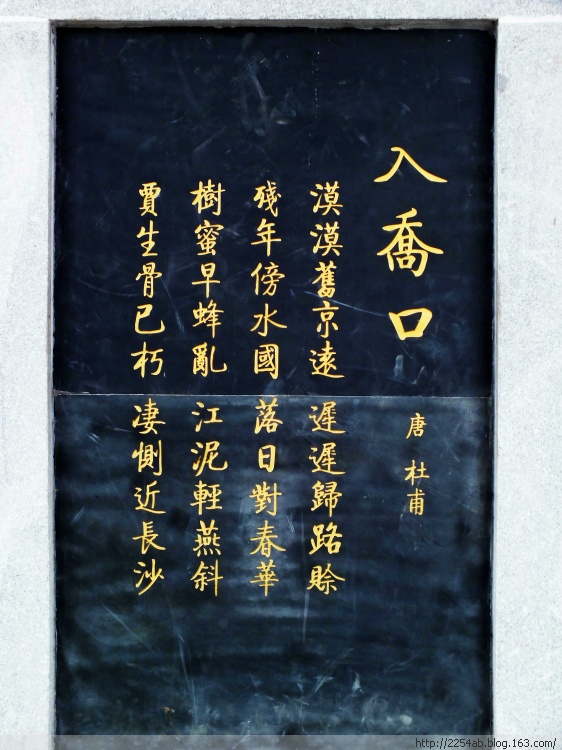 入喬口
唐 杜甫
漠漠舊京遠 遲遲歸路賒
殘年傍水國 落日對春華
樹蜜早蜂亂 江泥輕燕斜
賈生骨已朽 凄惻近長沙
http://2254ab.blog.163.com/